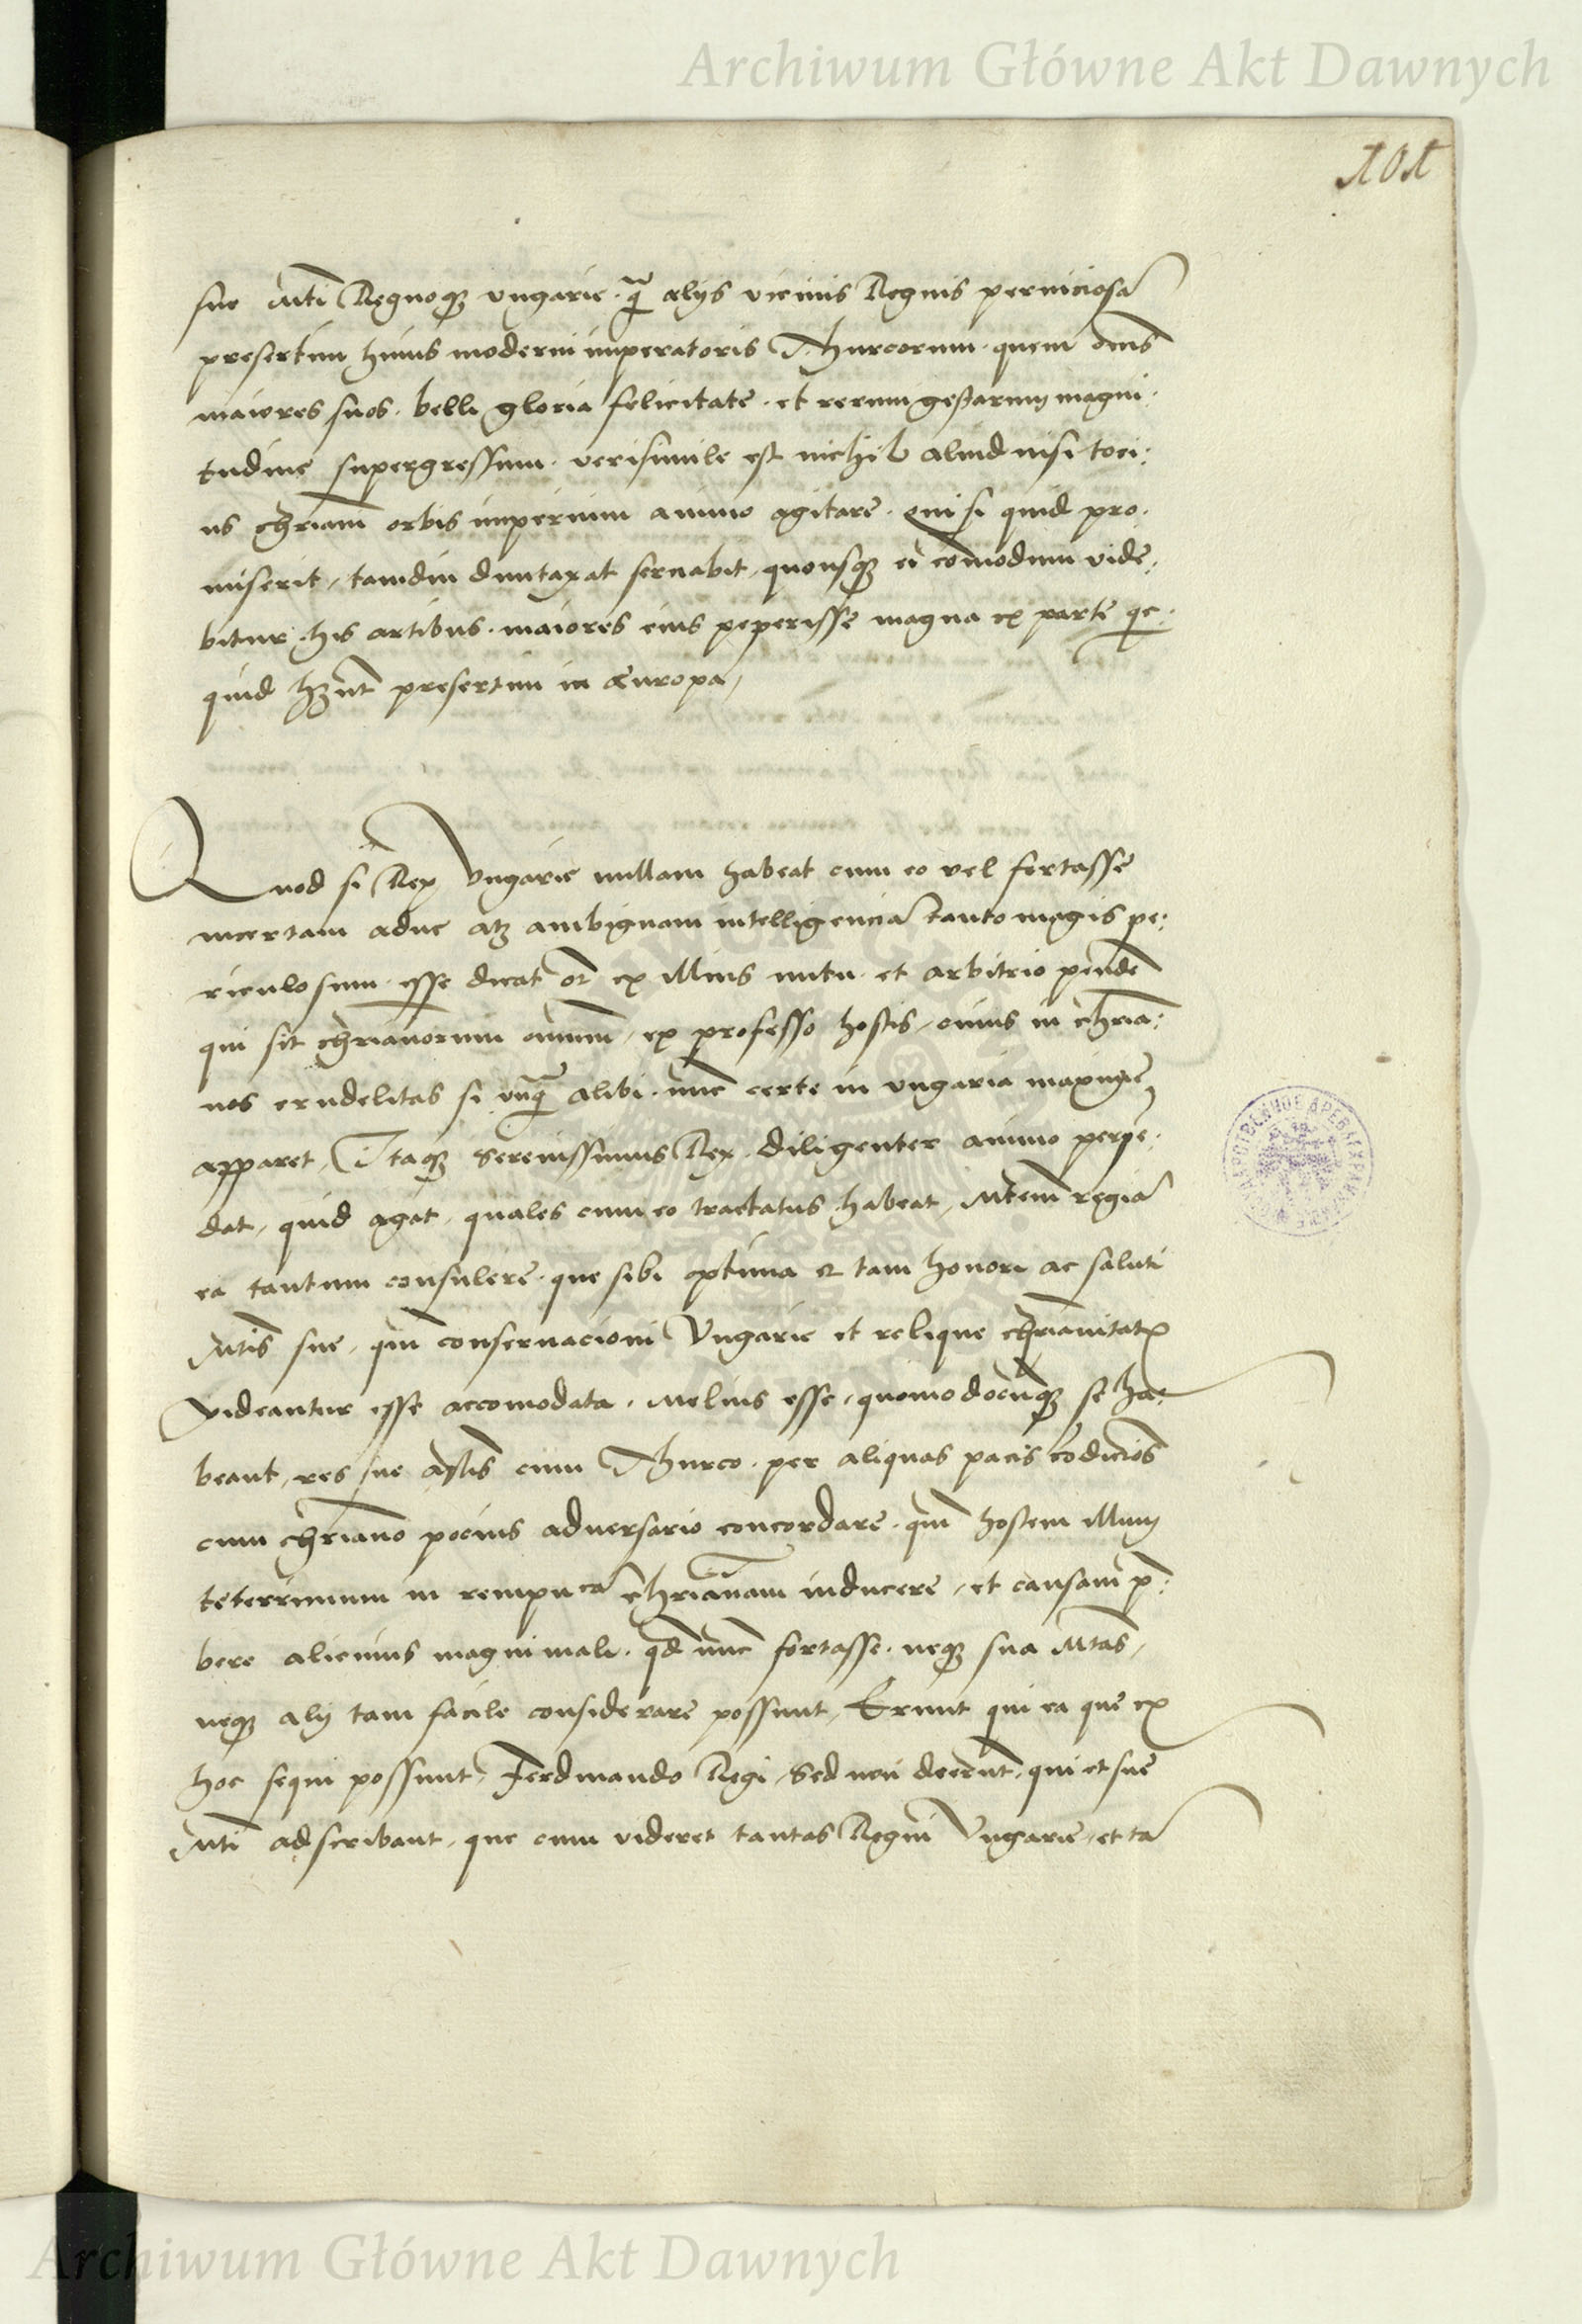 Archiwum Główne Akt Dawnych
101
sue Mti Regnoqȝ Vngarie. q̃ alijs vicinis Regnis perniciosã
presertim huius moderni imperatoris Thurcorum. quem oms̃
maiores suos. belli gloria felicitate. et rerum gestarum magni:
tudine supergressum. verisimile est nichil aliud nisi toci:
us chr̃iani orbis imperium animo agitare. qui si quid pro:
miserit, tamdiu duntaxat seruabit, quousqȝ ei com̃odum vide:
bitur. his artibus. maiores eius peperisse magna ex parte qc:
quid hñt presertim in Europa,
Quod si Rex Vngarie nullam habeat cum eo vel fortasse
incertam aduc atȝ ambiguam intelligenciã tanto magis pe:
riculosum esse ducat ex illius nutu et arbitrio pendẽ
qui sit chr̃ianorum omniũ, ex professo hostis, cuius in chr̃ia:
nos crudelitas si vnq̃ alibi. nũc certe in Vngaria maxime
apparet, Itaqȝ Serenissimus Rex diligenter animo perpẽ:
dat, quid agat, quales cum eo tractatus habeat, Mtem̃ regiã
ea tantum consulere. que sibi optima et tam honori ac saluti
Mtis̃ sue, qm̃ conseruacioni Vngarie et relique chr̃ianitatis
videantur esse accomodata. Melius esse, quomodocũqȝ se ha:
beant, res sue cum Thurco. per aliquas pacis cõdiciões
cum chr̃iano pocius aduersario concordare. qm̃ hostem illum
teterrimum in rempu cã chr̃ianam inducere, et causam p̃:
bere alicuius magni mali. qd̃ nũc fortasse. neqȝ sua Mtas̃,
neqȝ alij tam facile considerare possunt, Erunt qui ea que ex
hoc sequi possunt, Ferdinando Regi, Sed non deerũt, qui et sue
Mti adscribant, que cum videret tantas Regni Vngarie, et tã
Archiwum Główne Akt Dawnych